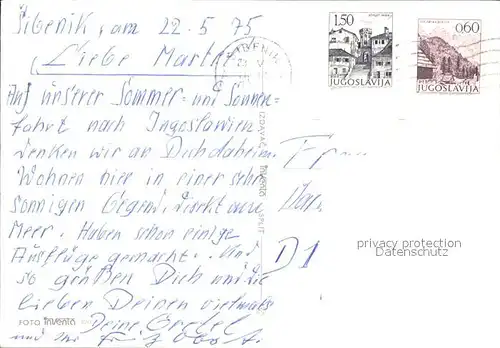 Šibenik, am 22.5.75
Liebe Martha
Auf unserer Sommer- und Sonnen=
fahrt nach Jugoslawien
denken wir an Dich daheim.
Wohnen hier in einer sehr
sonnigen Gegend, direkt am
Meer. Haben schon einige
Ausflüge gemacht. Und
so grüßen Dich und die
lieben Deinen vielmals
Deine Gretel
und
FOTO
ŠIBENIK
1.50
JUGOSLAVIJA
0.60
JUGOSLAVIJA
IZDAVAČ
SPLIT
Frau
D1
privacy protection
Datenschutz